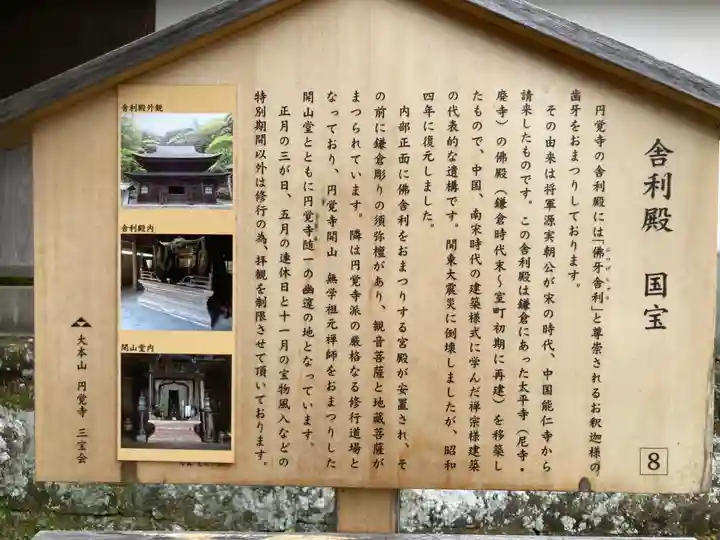 舎利殿 国宝
円覚寺の舎利殿には「佛牙舎利」と尊崇されるお釈迦様の
ぶつげしゃり
歯牙をおまつりしております。
その由来は将軍源実朝公が宋の時代、中国能仁寺から
請来したものです。この舎利殿は鎌倉にあった太平寺（尼寺・
廃寺）の佛殿（鎌倉時代末〜室町初期に再建）を移築し
たもので、中国、南宋時代の建築様式に学んだ禅宗様建築
の代表的な遺構です。関東大震災に倒壊しましたが、昭和
四年に復元しました。
内部正面に佛舎利をおまつりする宮殿が安置され、そ
の前に鎌倉彫りの須弥壇があり、観音菩薩と地蔵菩薩が
まつられています。隣は円覚寺派の厳格なる修行道場と
なっており、円覚寺開山 無学祖元禅師をおまつりした
開山堂とともに円覚寺随一の幽邃の地となっています。
正月の三が日、五月の連休日と十一月の宝物風入などの
特別期間以外は修行の為、拝観を制限させて頂いております。
舎利殿外観
舎利殿内
開山堂内
大本山 円覚寺 三宝会
8